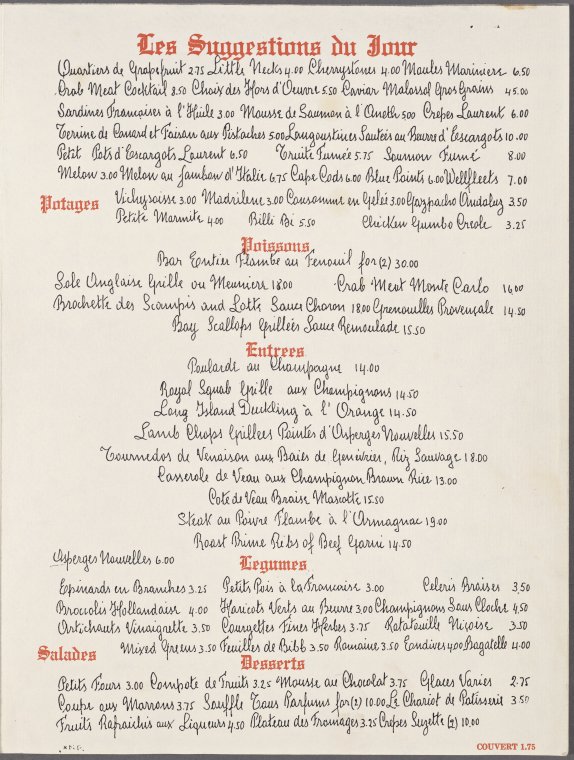 Les Suggestions du Jour
Quartiers de Grapefruit 2.75 Little Necks 4.00 Cherrystones 4.00 Moules Mariniere 6.50
Crab Meat Cocktail 8.50 Choix des Hors d'Oeuvre 5.50 Caviar Malossol Gros Grains 45.00
Sardines Françaises à l'Huile 3.00 Mousse de Saumon à l'Aneth 5.00 Crepes Laurent 6.00
Terrine de Canard et Faisan aux Pistaches 5.00 Langoustines Sautées au Beurre d'Escargots 10.00
Petit Pots d'Escargots Laurent 6.50 Truite Fumée 5.75 Saumon Fumé 8.00
Melon 3.00 Melon au Jambon d'Italie 6.75 Cape Cods 6.00 Blue Points 6.00 Wellfleets 7.00
Potages Vichyssoise 3.00 Madrilene 3.00 Consomme en Gelée 3.00 Gazpacho Andaluz 3.50
Petite Marmite 4.00 Billi Bi 5.50 Chicken Gumbo Creole 3.25
Poissons
Bar Entier Flambe au Fenouil for (2) 30.00
Sole Anglaise Grille ou Meuniere 18.00 Crab Meat Monte Carlo 16.00
Brochette des Scampis and Lotte Sauce Choron 18.00 Grenouilles Provençale 14.50
Bay Scallops Grilleés Sauce Remoulade 15.50
Entrees
Poularde au Champagne 14.00
Royal Squab Grille aux Champignons 14.50
Long Island Duckling à l'Orange 14.50
Lamb Chops Grillees Pointes d'Asperges Nouvelles 15.50
Tournedos de Venaison aux Baies de Genievrier, Riz Sauvage 18.00
Casserole de Veau aux Champignon Brown Rice 13.00
Cote de Veau Braise Mascotte 15.50
Steak au Poivre Flambe à l'Armagnac 19.00
Roast Prime Ribs of Beef Garni 14.50
Asperges Nouvelles 6.00 Legumes
Epinards en Branches 3.25 Petits Pois à la Francaise 3.00 Celeris Braises 3.50
Broccolis Hollandaise 4.00 Haricots Verts au Beurre 3.00 Champignons Sous Cloche 4.50
Artichauts Vinaigrette 3.50 Courgettes Fines Herbes 3.75 Ratatouille Niçoise 3.50
Salades Mixed Greens 3.50 Feuilles de Bibb 3.50 Romaine 3.50 Endives 4.00 Bagatelle 4.00
Desserts
Petits Fours 3.00 Compote de Fruits 3.25 Mousse au Chocolat 3.75 Glaces Varies 2.75
Coupe aux Marrons 3.75 Souffle Tous Parfums for (2) 10.00 Le Chariot de Patisserie 3.50
Fruits Rafraichis aux Liqueurs 4.50 Plateau des Fromages 3.25 Crepes Suzette (2) 10.00
COUVERT 1.75